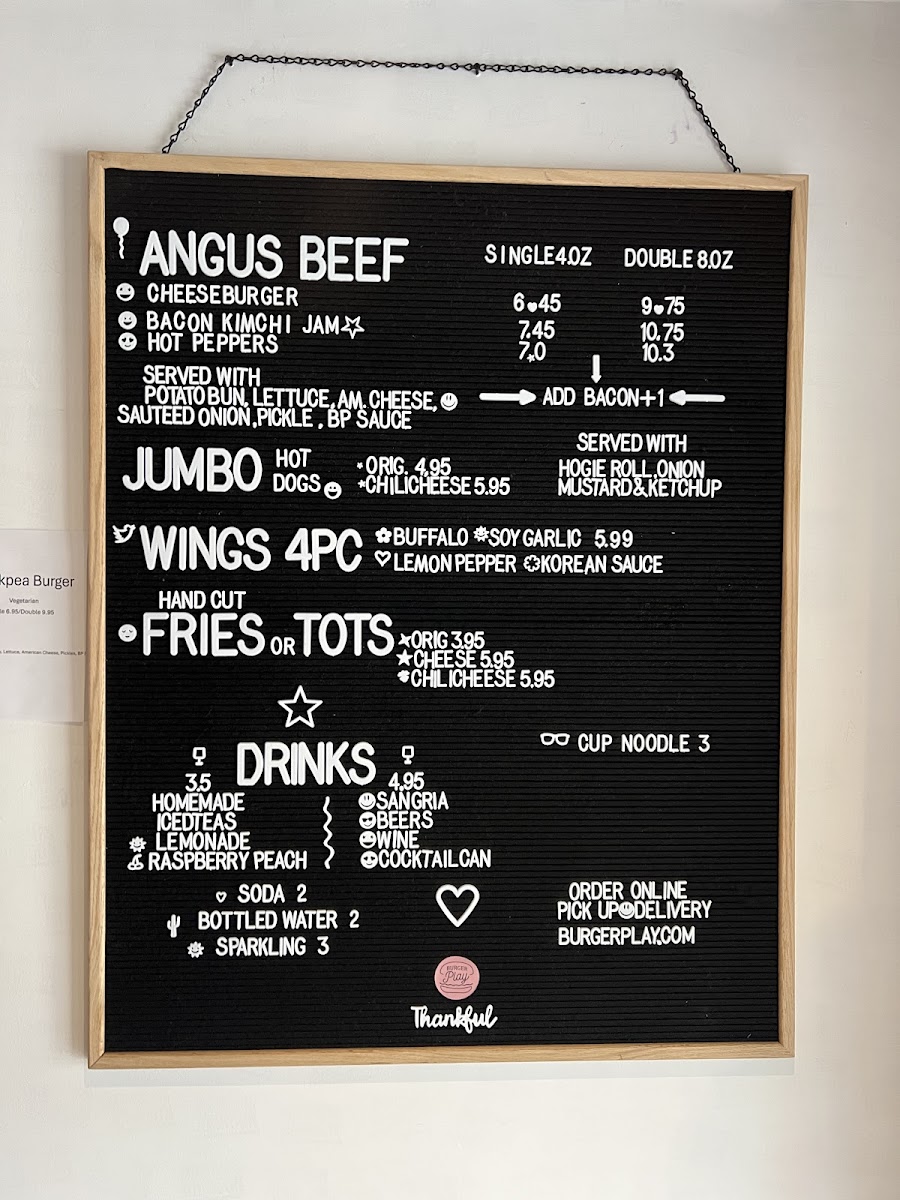 ANGUS BEEF
SINGLE 4.OZ DOUBLE 8.OZ
CHEESEBURGER 6.45 9.75
BACON KIMCHI JAM 7.45 10.75
HOT PEPPERS 7.0 10.3
SERVED WITH
POTATO BUN, LETTUCE, AM. CHEESE,
SAUTEED ONION, PICKLE, BP SAUCE
ADD BACON+1
JUMBO HOT DOGS
ORIG. 4.95
CHILICHEESE 5.95
SERVED WITH
HOGIE ROLL, ONION
MUSTARD&KETCHUP
WINGS 4PC
BUFFALO SOY GARLIC 5.99
LEMON PEPPER KOREAN SAUCE
HAND CUT
FRIES OR TOTS
ORIG 3.95
CHEESE 5.95
CHILICHEESE 5.95
CUP NOODLE 3
DRINKS
3.5
HOMEMADE
ICED TEAS
LEMONADE
RASPBERRY PEACH
4.95
SANGRIA
BEERS
WINE
COCKTAIL CAN
SODA 2
BOTTLED WATER 2
SPARKLING 3
ORDER ONLINE
PICK UP DELIVERY
BURGERPLAY.COM
BURGER
Play
Thankful
kpea Burger
Vegetarian
le 6.95/Double 9.95
Lettuce, American Cheese, Pickles, BP